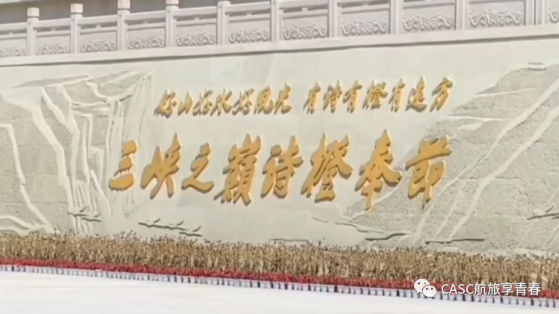 好山好水好风光 有诗有橙有远方
三峡之巅诗橙奉节
CASC航旅享青春